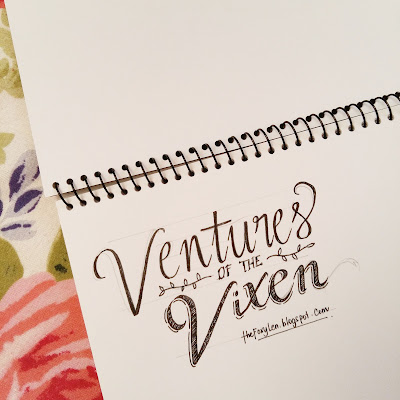 Ventures
OF THE
Vixen
thefoxyLen.blogspot.com